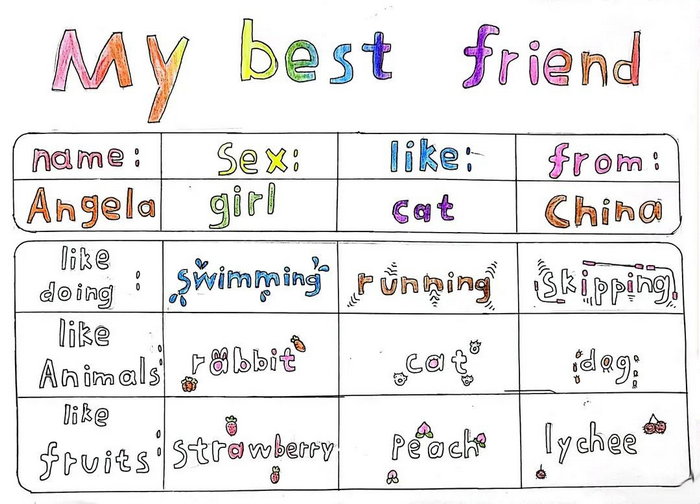 My best friend
name: sex: like: from:
Angela girl cat China
like doing : swimming running skipping
like Animals: rabbit cat dog
like fruits: strawberry peach lychee